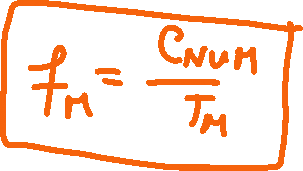 f_M = C_NUM / T_M